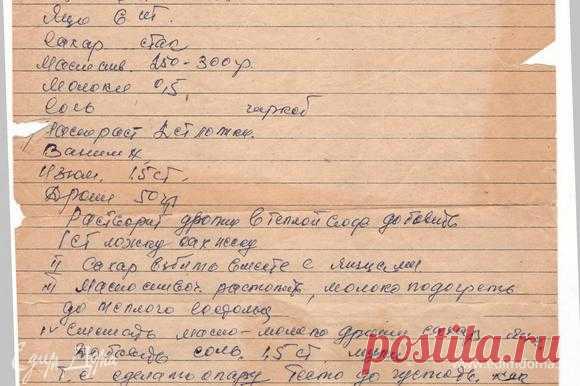 Яиц 6 шт.
Сахар стак
Масло слив. 250-300 гр.
Молоко 0,5
Соль
Масло раст 2 ст ложки.
Ванилин,
Изюм. 1,5 ст.
Дрожи 50 гр
Растворит дрожи в теплой сюда добавить
1 ст ложку сах песку
II Сахар взбить вместе с яйцами.
III Масло сливоч. растопить, молоко подогреть
до теплого
IV Смешать масло-молоко дрожи сахар
Добавить соль. 1,5 ст. муки
Т.е сделать опару Тесто до густоты, как
Едим Дома
edimdoma
postila.ru